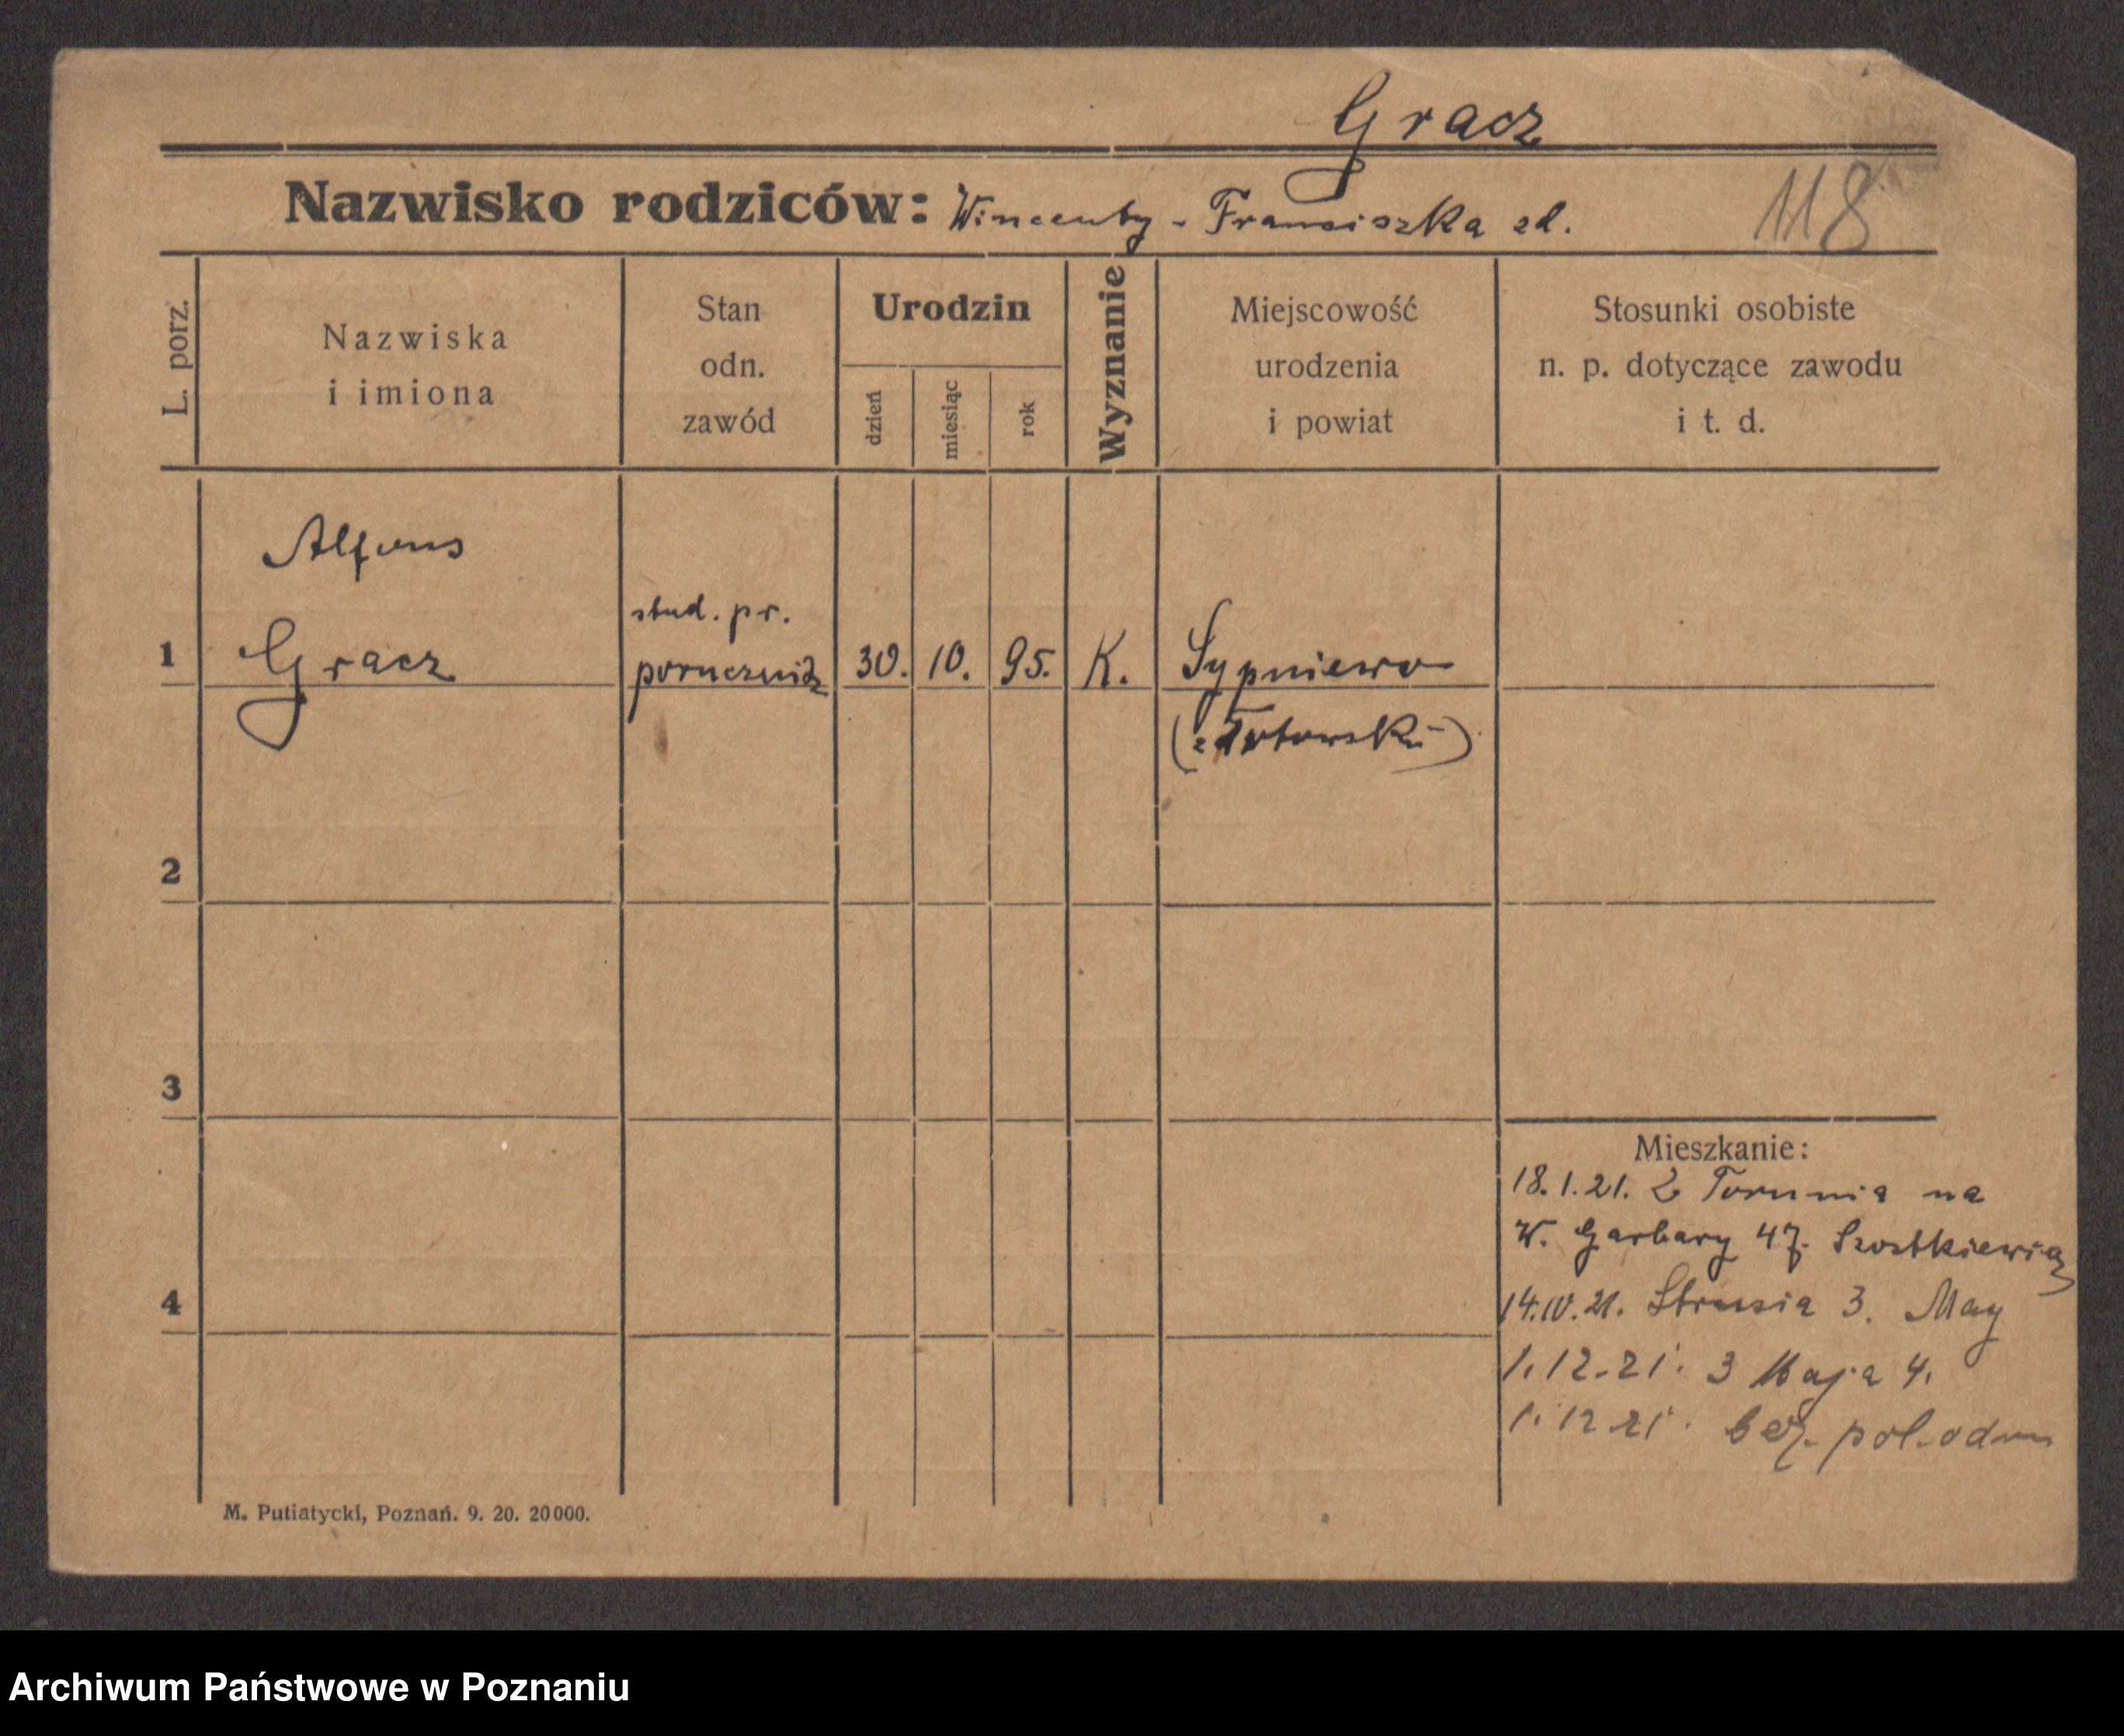 Gracz
Nazwisko rodziców: Wincenty - Franciszka zd.
118
L. porz.
Nazwiska
i imiona
Stan
odn.
zawód
Urodzin
dzień
miesiąc
rok
Wyznanie
Miejscowość
urodzenia
i powiat
Stosunki osobiste
n. p. dotyczące zawodu
i t. d.
Alfons
stud. pr.
1 Gracz porucznik 30. 10. 95. K. Sypniewo
(złotowski)
2
3
Mieszkanie:
18.1.21. Z Torunia na
W. Garbary 47. Szostkiewicz
4
14.IV.21. Strusia 3. May
1.12.21. 3 Maja 4.
1.12 21. bez pol. odm
M. Putiatycki, Poznań. 9. 20. 20000.
Archiwum Państwowe w Poznaniu